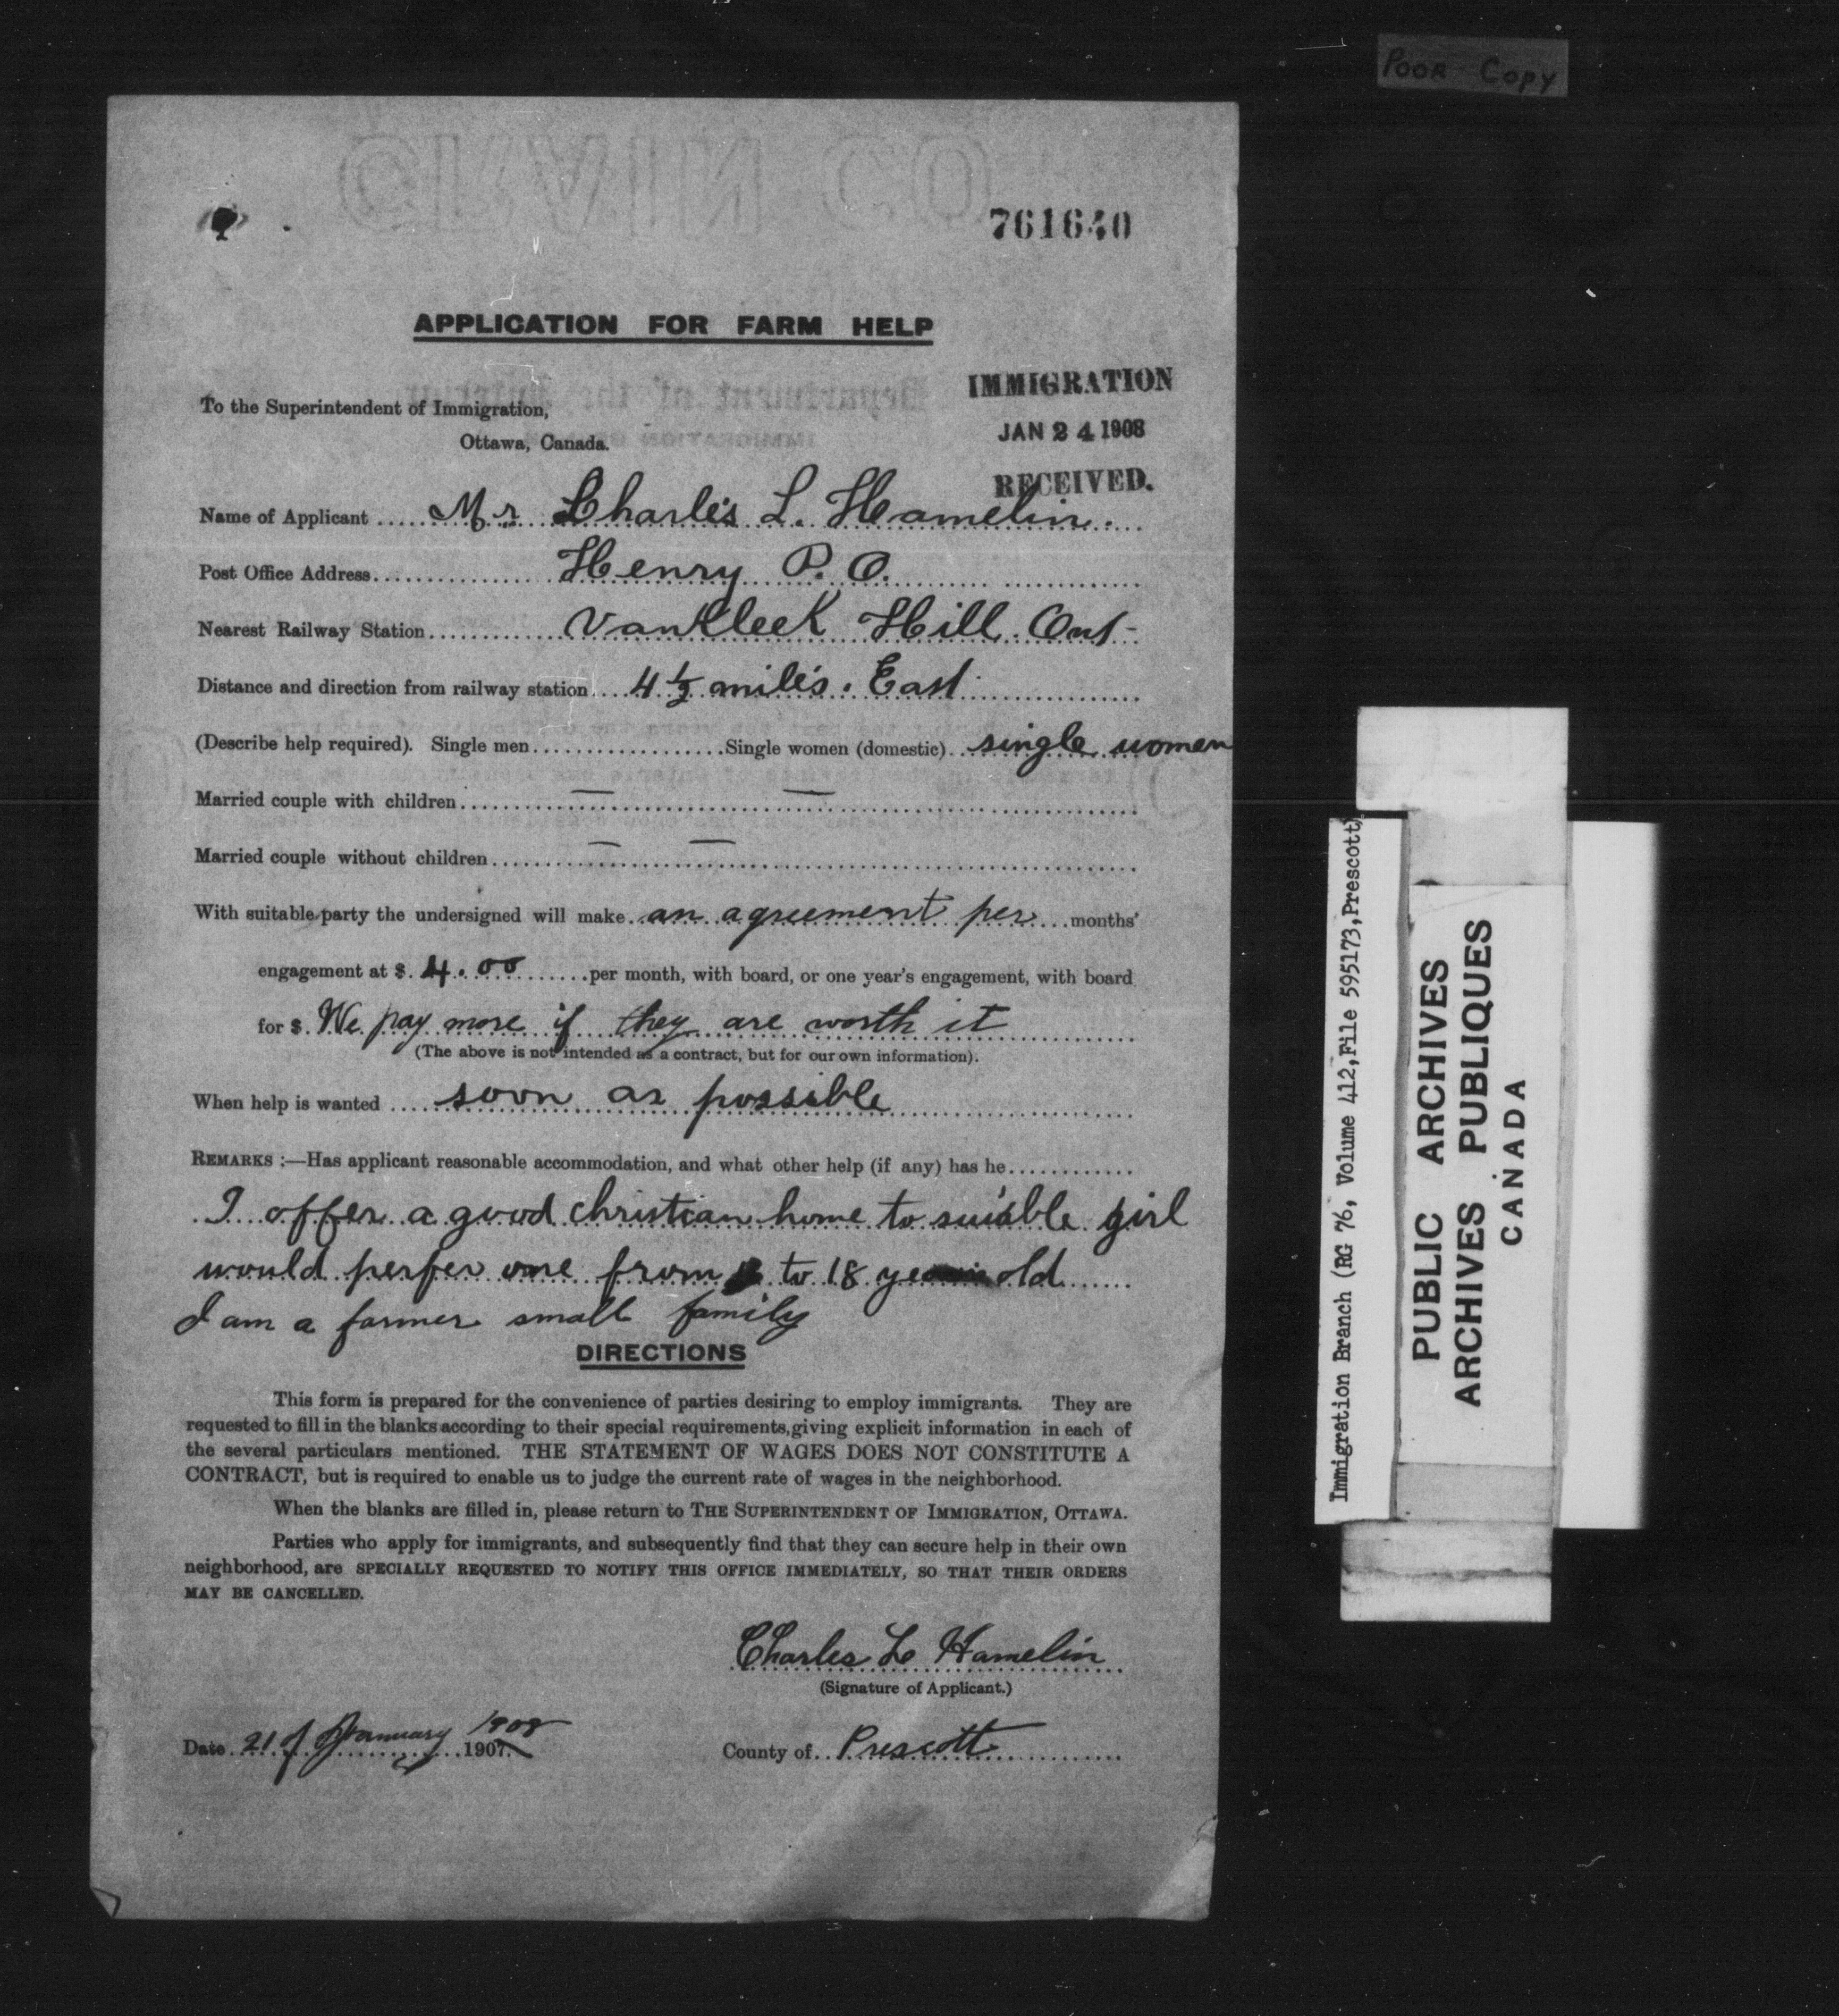 POOR COPY
761640
APPLICATION FOR FARM HELP
To the Superintendent of Immigration,
Ottawa, Canada.
IMMIGRATION
JAN 24 1908
RECEIVED.
Name of Applicant Mr Charles L. Hamelin.
Post Office Address Henry P. O.
Nearest Railway Station VanKleek Hill. Ont-
Distance and direction from railway station 4 1/2 miles. East
(Describe help required). Single men Single women (domestic) single women
Married couple with children — —
Married couple without children — —
With suitable party the undersigned will make an agreement per months'
engagement at $ 4.00 per month, with board, or one year's engagement, with board
for $ We pay more if they are worth it
(The above is not intended as a contract, but for our own information).
When help is wanted soon as possible
REMARKS :—Has applicant reasonable accommodation, and what other help (if any) has he
I offer a good christian home to suiable girl
would perfer one from to 18 years old
I am a farmer small family
DIRECTIONS
This form is prepared for the convenience of parties desiring to employ immigrants. They are
requested to fill in the blanks according to their special requirements, giving explicit information in each of
the several particulars mentioned. THE STATEMENT OF WAGES DOES NOT CONSTITUTE A
CONTRACT, but is required to enable us to judge the current rate of wages in the neighborhood.
When the blanks are filled in, please return to THE SUPERINTENDENT OF IMMIGRATION, OTTAWA.
Parties who apply for immigrants, and subsequently find that they can secure help in their own
neighborhood, are SPECIALLY REQUESTED TO NOTIFY THIS OFFICE IMMEDIATELY, SO THAT THEIR ORDERS
MAY BE CANCELLED.
Charles L Hamelin
(Signature of Applicant.)
Date 21 of January 1908 1907.
County of Prescott
Immigration Branch (RG 76, Volume 412, File 595173, Prescott)
PUBLIC ARCHIVES
ARCHIVES PUBLIQUES
CANADA